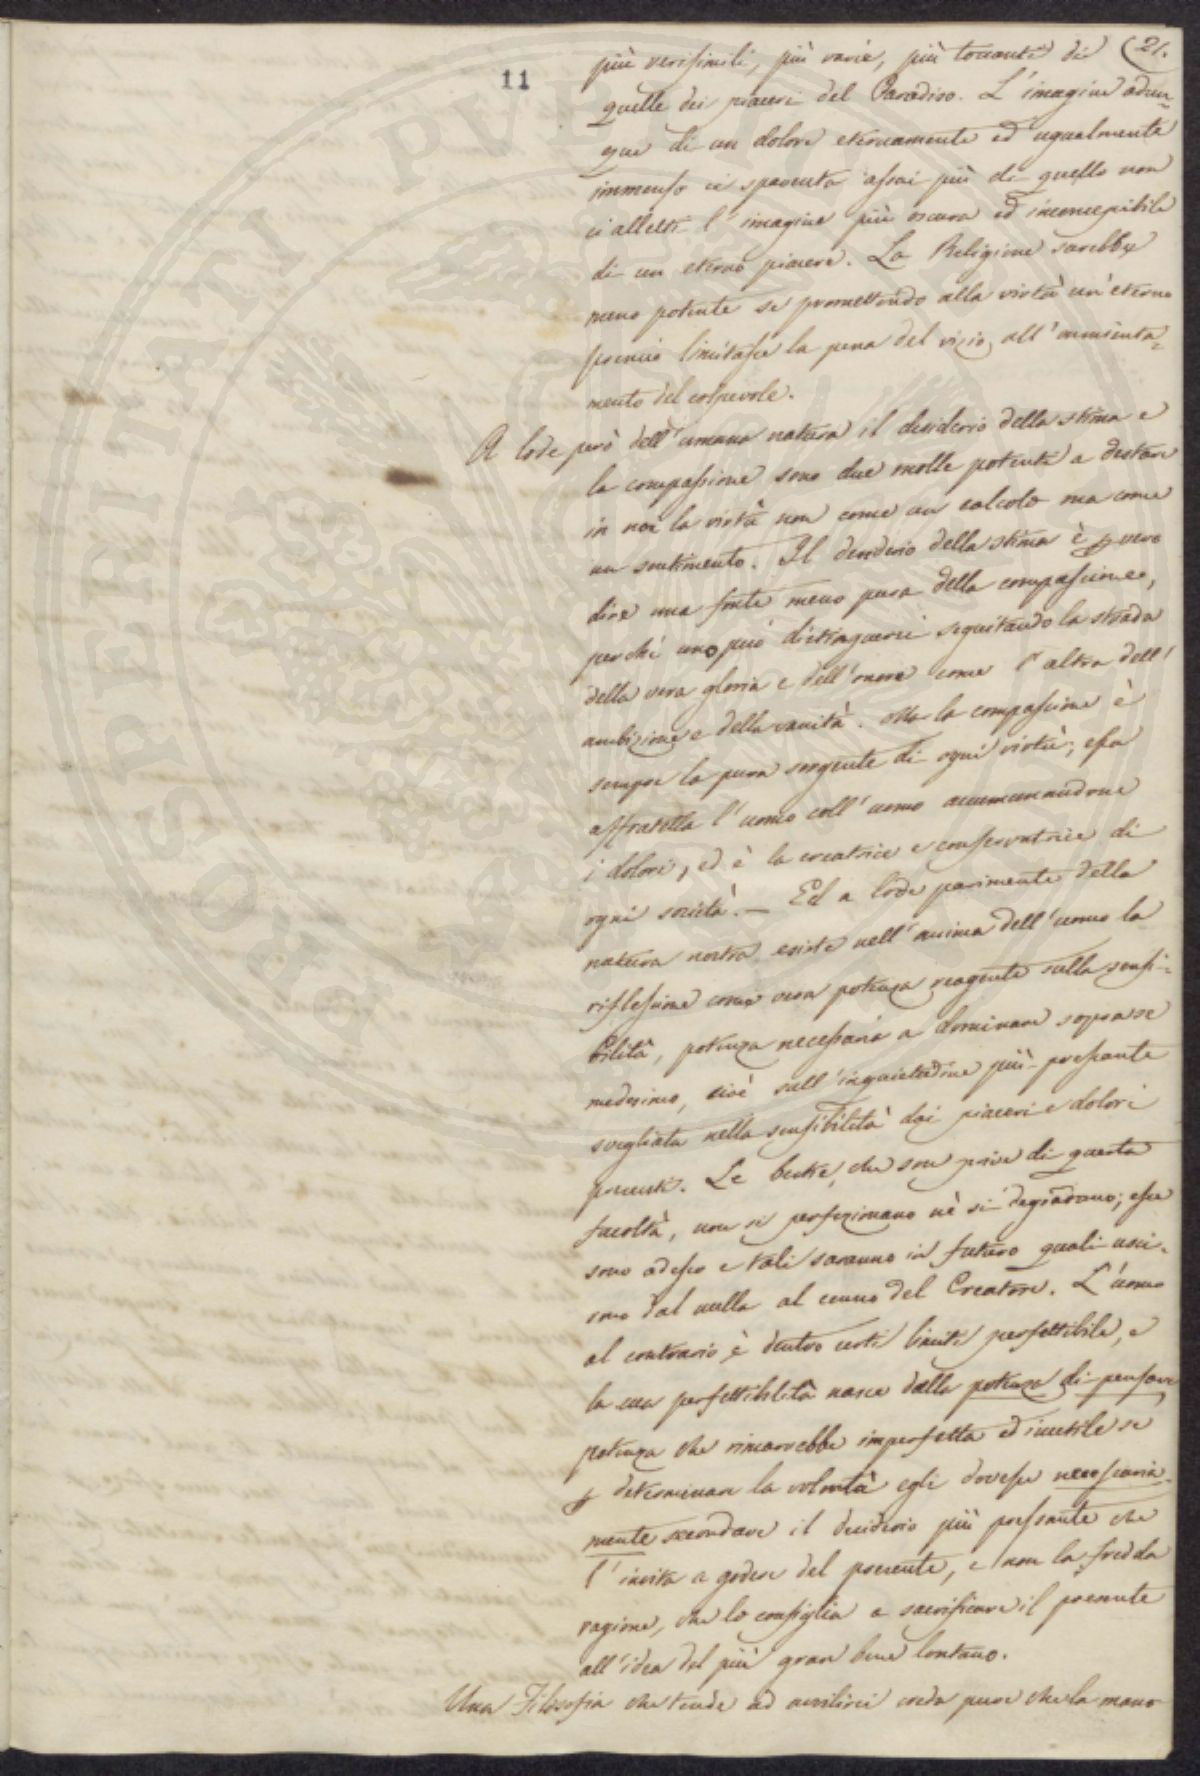 21.
11
più verisimili, più varie, più toccanti di
quelle dei piaceri del Paradiso. L'imagine adun=
que di un dolore eternamente ed ugualmente
immenso ci spaventa assai più di quello non
ci alletti l'imagine più oscura ed inconcepibile
di un eterno piacere. La Religione sarebbe
meno potente se promettendo alla virtù un'eterno
premio limitasse la pena del vizio all'annienta=
mento del colpevole.
A lode però dell'umana natura il desiderio della stima e
la compassione sono due molle potenti a destare
in noi la virtù non come un calcolo ma come
un sentimento. Il desiderio della stima è p vero
dire una fonte meno pura della compassione,
perchè uno può distinguersi seguitando la strada
della vera gloria e dell'onore come l'altra dell'
ambizione e della vanità. Ma la compassione è
sempre la pura sorgente di ogni virtù; essa
affratella l'uomo coll'uomo accumunandone
i dolori, ed è la creatrice e conservatrice di
ogni società. — Ed a lode parimente della
natura nostra esiste nell'anima dell'uomo la
riflessione come vera potenza reagente sulla sensi=
bilità, potenza necessaria a dominare sopra se
medesimo, cioè sull'inquietudine più pressante
svegliata nella sensibilità dai piaceri e dolori
presenti. Le bestie, che son prive di questa
facoltà, non si perfezionano nè si degradano; esse
sono adesso e tali saranno in futuro quali usci=
rono dal nulla al cenno del Creatore. L'uomo
al contrario è dentro certi limiti perfettibile, e
la sua perfettibilità nasce dalla potenza di pensare,
potenza che rimarrebbe imperfetta ed inutile se
p determinare la volontà egli dovesse necessaria=
mente secondare il desiderio più pressante che
l'invita a godere del presente, e non la fredda
ragione, che lo consiglia a sacrificare il presente
all'idea del più gran bene lontano.
Una Filosofia che tende ad avvilirci creda pure che la mano
PROSPERITATI PVBLICAE